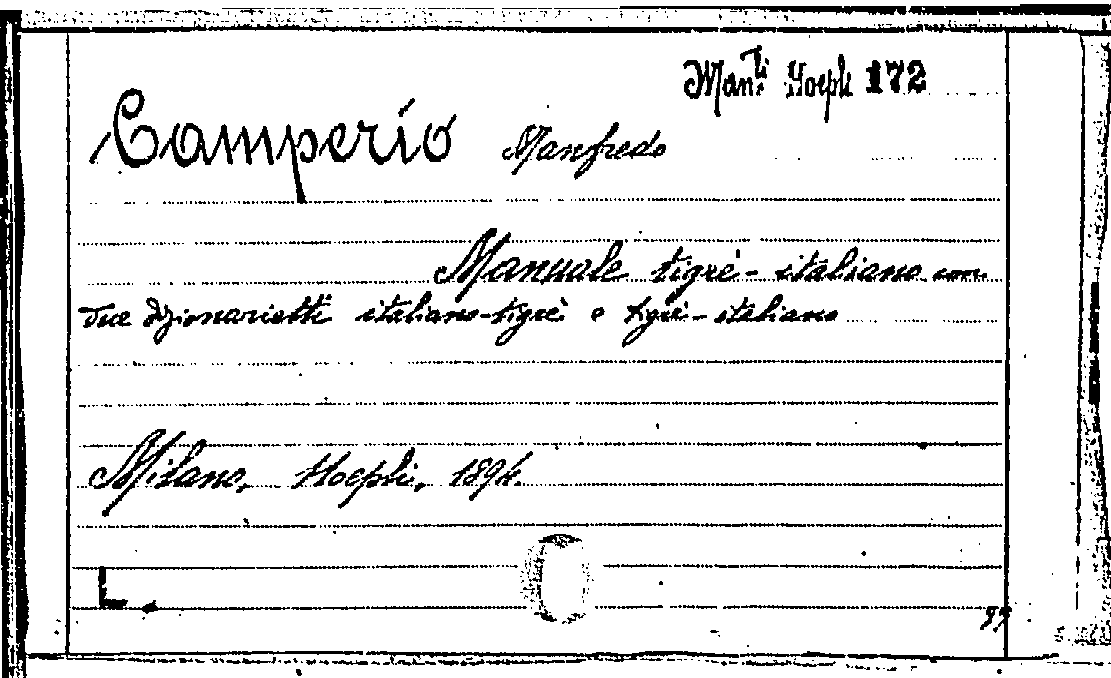 Man.li Hoepli 172
Camperio Manfredo
Manuale tigrè-italiano con
due dizionarietti italiano-tigrè e tigrè-italiano
Milano, Hoepli, 1894.
L.